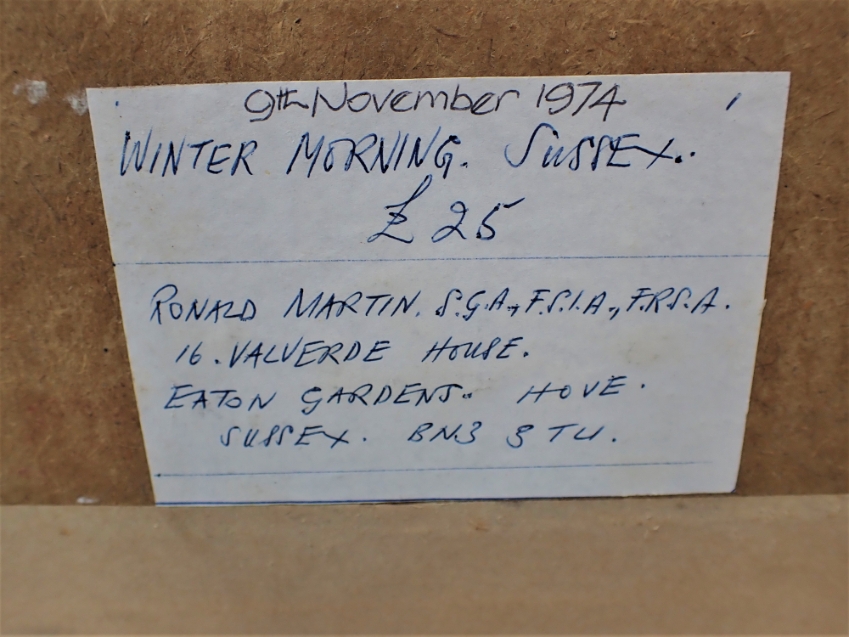 9th November 1974
WINTER MORNING. SUSSEX..
£25
RONALD MARTIN. S.G.A., F.S.I.A., F.R.S.A.
16. VALVERDE HOUSE.
EATON GARDENS.. HOVE.
SUSSEX. BN3 3TU.